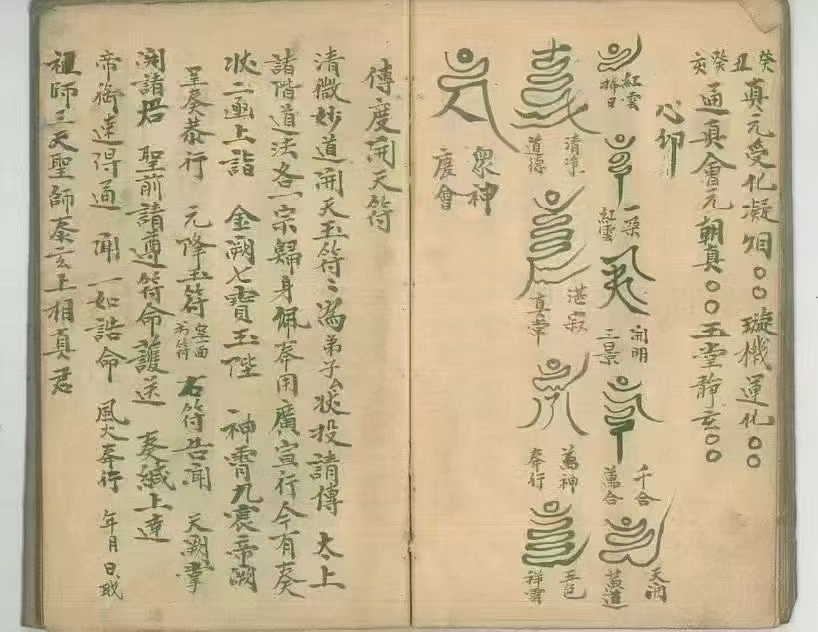 癸丑 真元受化凝烟〇〇璇機運化〇〇
癸亥 通真會元朝真〇〇玉堂靜玄〇〇
心印
紅雲捧日
一朵紅雲
開明三景
千合萬合
天開黃道
清凉道德
湛寂真常
萬神奉行
五色祥雲
眾神慶會
傳度開天符
清微妙道開天玉符〻為弟子ム狀投請傳 太上
諸階道法各一宗歸身佩奉用廣宣行今有奏
狀一函上詣 金闕七寶玉陛 神霄九宸帝闕
呈奏恭行 元降玉符 空面 右符告聞 天闕掌
開諸君 聖前請遵符命護送 奏緘上達
帝御達得通 聞一如誥命 風火奉行 年月日
祖師三天聖師泰玄上相真君